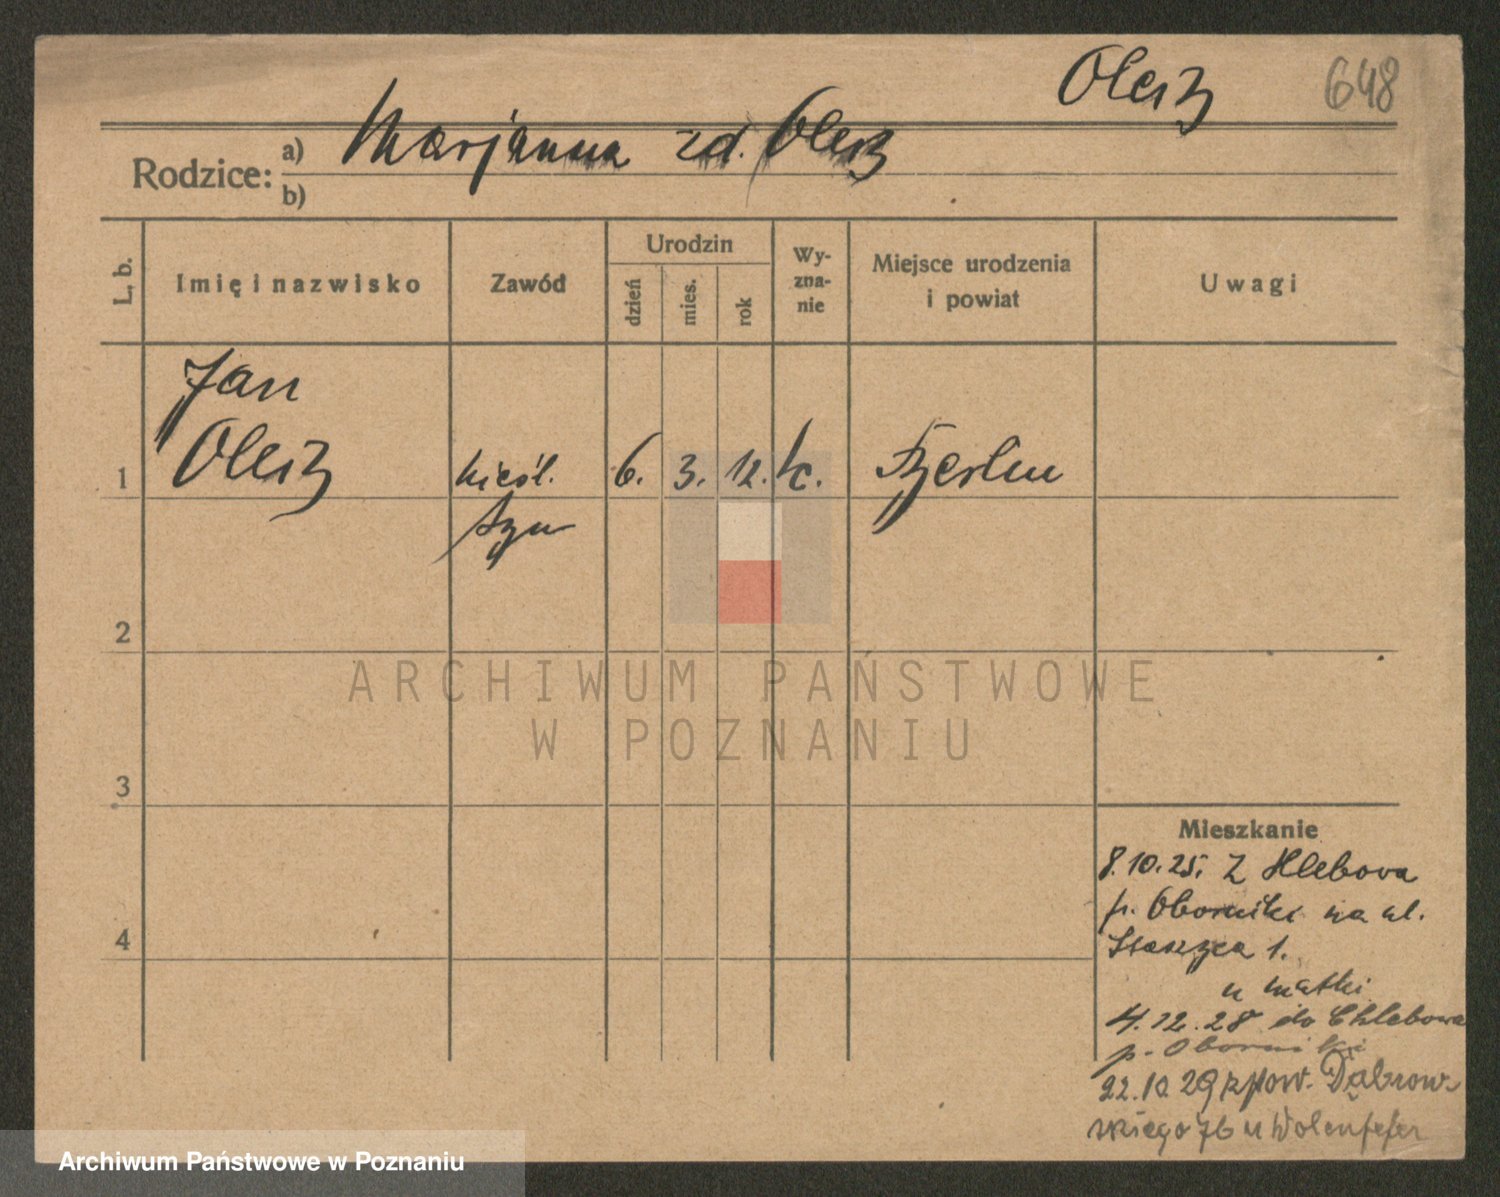 Olesz 648
Rodzice: a) Marjanna zd. Olesz
b)
L. b. Imię i nazwisko Zawód Urodzin dzień mies. rok Wy-zna-nie Miejsce urodzenia i powiat Uwagi
Jan
1 Olesz nieśl. 6. 3. 12. k. Berlin
syn
2
3
4
Mieszkanie
8.10.25. Z Hlebova
p. Oborniki na ul.
Staszyca 1.
u matki
4.12.28 do Chlebowa
p. Oborniki
22.10 29 z pow. Dąbrow-
skiego 76 u
ARCHIWUM PAŃSTWOWE
W POZNANIU
Archiwum Państwowe w Poznaniu